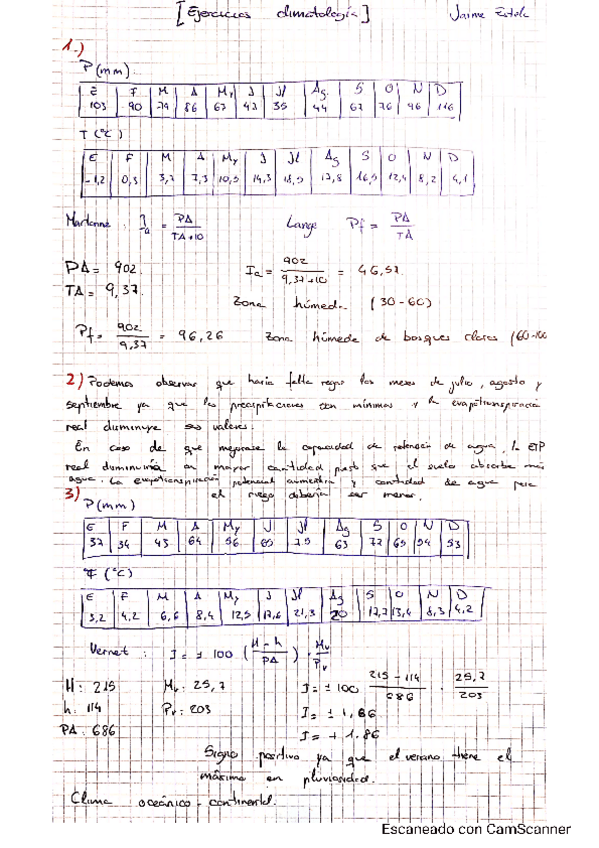 [Ejercicios climatología] Jaime
1.)
P (mm)
E F M A My J Jl Ag S O N D
103 90 79 86 67 43 35 44 67 76 96 116
T (°C)
E F M A My J Jl Ag S O N D
-1,2 0,3 3,7 7,3 10,5 14,3 18,5 17,8 16,5 12,4 8,2 4,1
Martonne : Ia = PA / TA+10 Lange Pf = PA / TA
PA = 902. Ia = 902 / 9,37+10 = 46,57
TA = 9,37. Zona húmeda (30-60)
Pf = 902 / 9,37 = 96,26 Zona húmeda de bosques claros (60-100
2) Podemos observar que haría falta regar los meses de julio, agosto y
septiembre ya que las precipitaciones son mínimas y la evapotranspiració
real disminuye sus valores.
En caso de que mejorase la capacidad de retención de agua, la ETP
real disminuiría en mayor cantidad puesto que el suelo absorbe más
agua. La evapotranspiración potencial aumentaría y cantidad de agua para
el riego debería ser menor.
3)
P (mm)
E F M A My J Jl Ag S O N D
37 34 43 64 56 65 75 63 72 65 54 53
T (°C)
E F M A My J Jl Ag S O N D
3,2 4,2 6,6 8,4 12,5 17,6 21,3 20 17,7 13,4 8,3 4,2
Vernet : I = ± 100 (H - h / PA) · Mv / Pv
H: 215 Mv: 25,7 I = ± 100 215 - 114 / 686 · 25,7 / 203
h: 114 Pv: 203 I = ± 1,86
PA: 686 I = + 1.86
Signo positivo ya que el verano tiene el
máximo en pluviosidad.
Clima oceánico - continental.
Escaneado con CamScanner